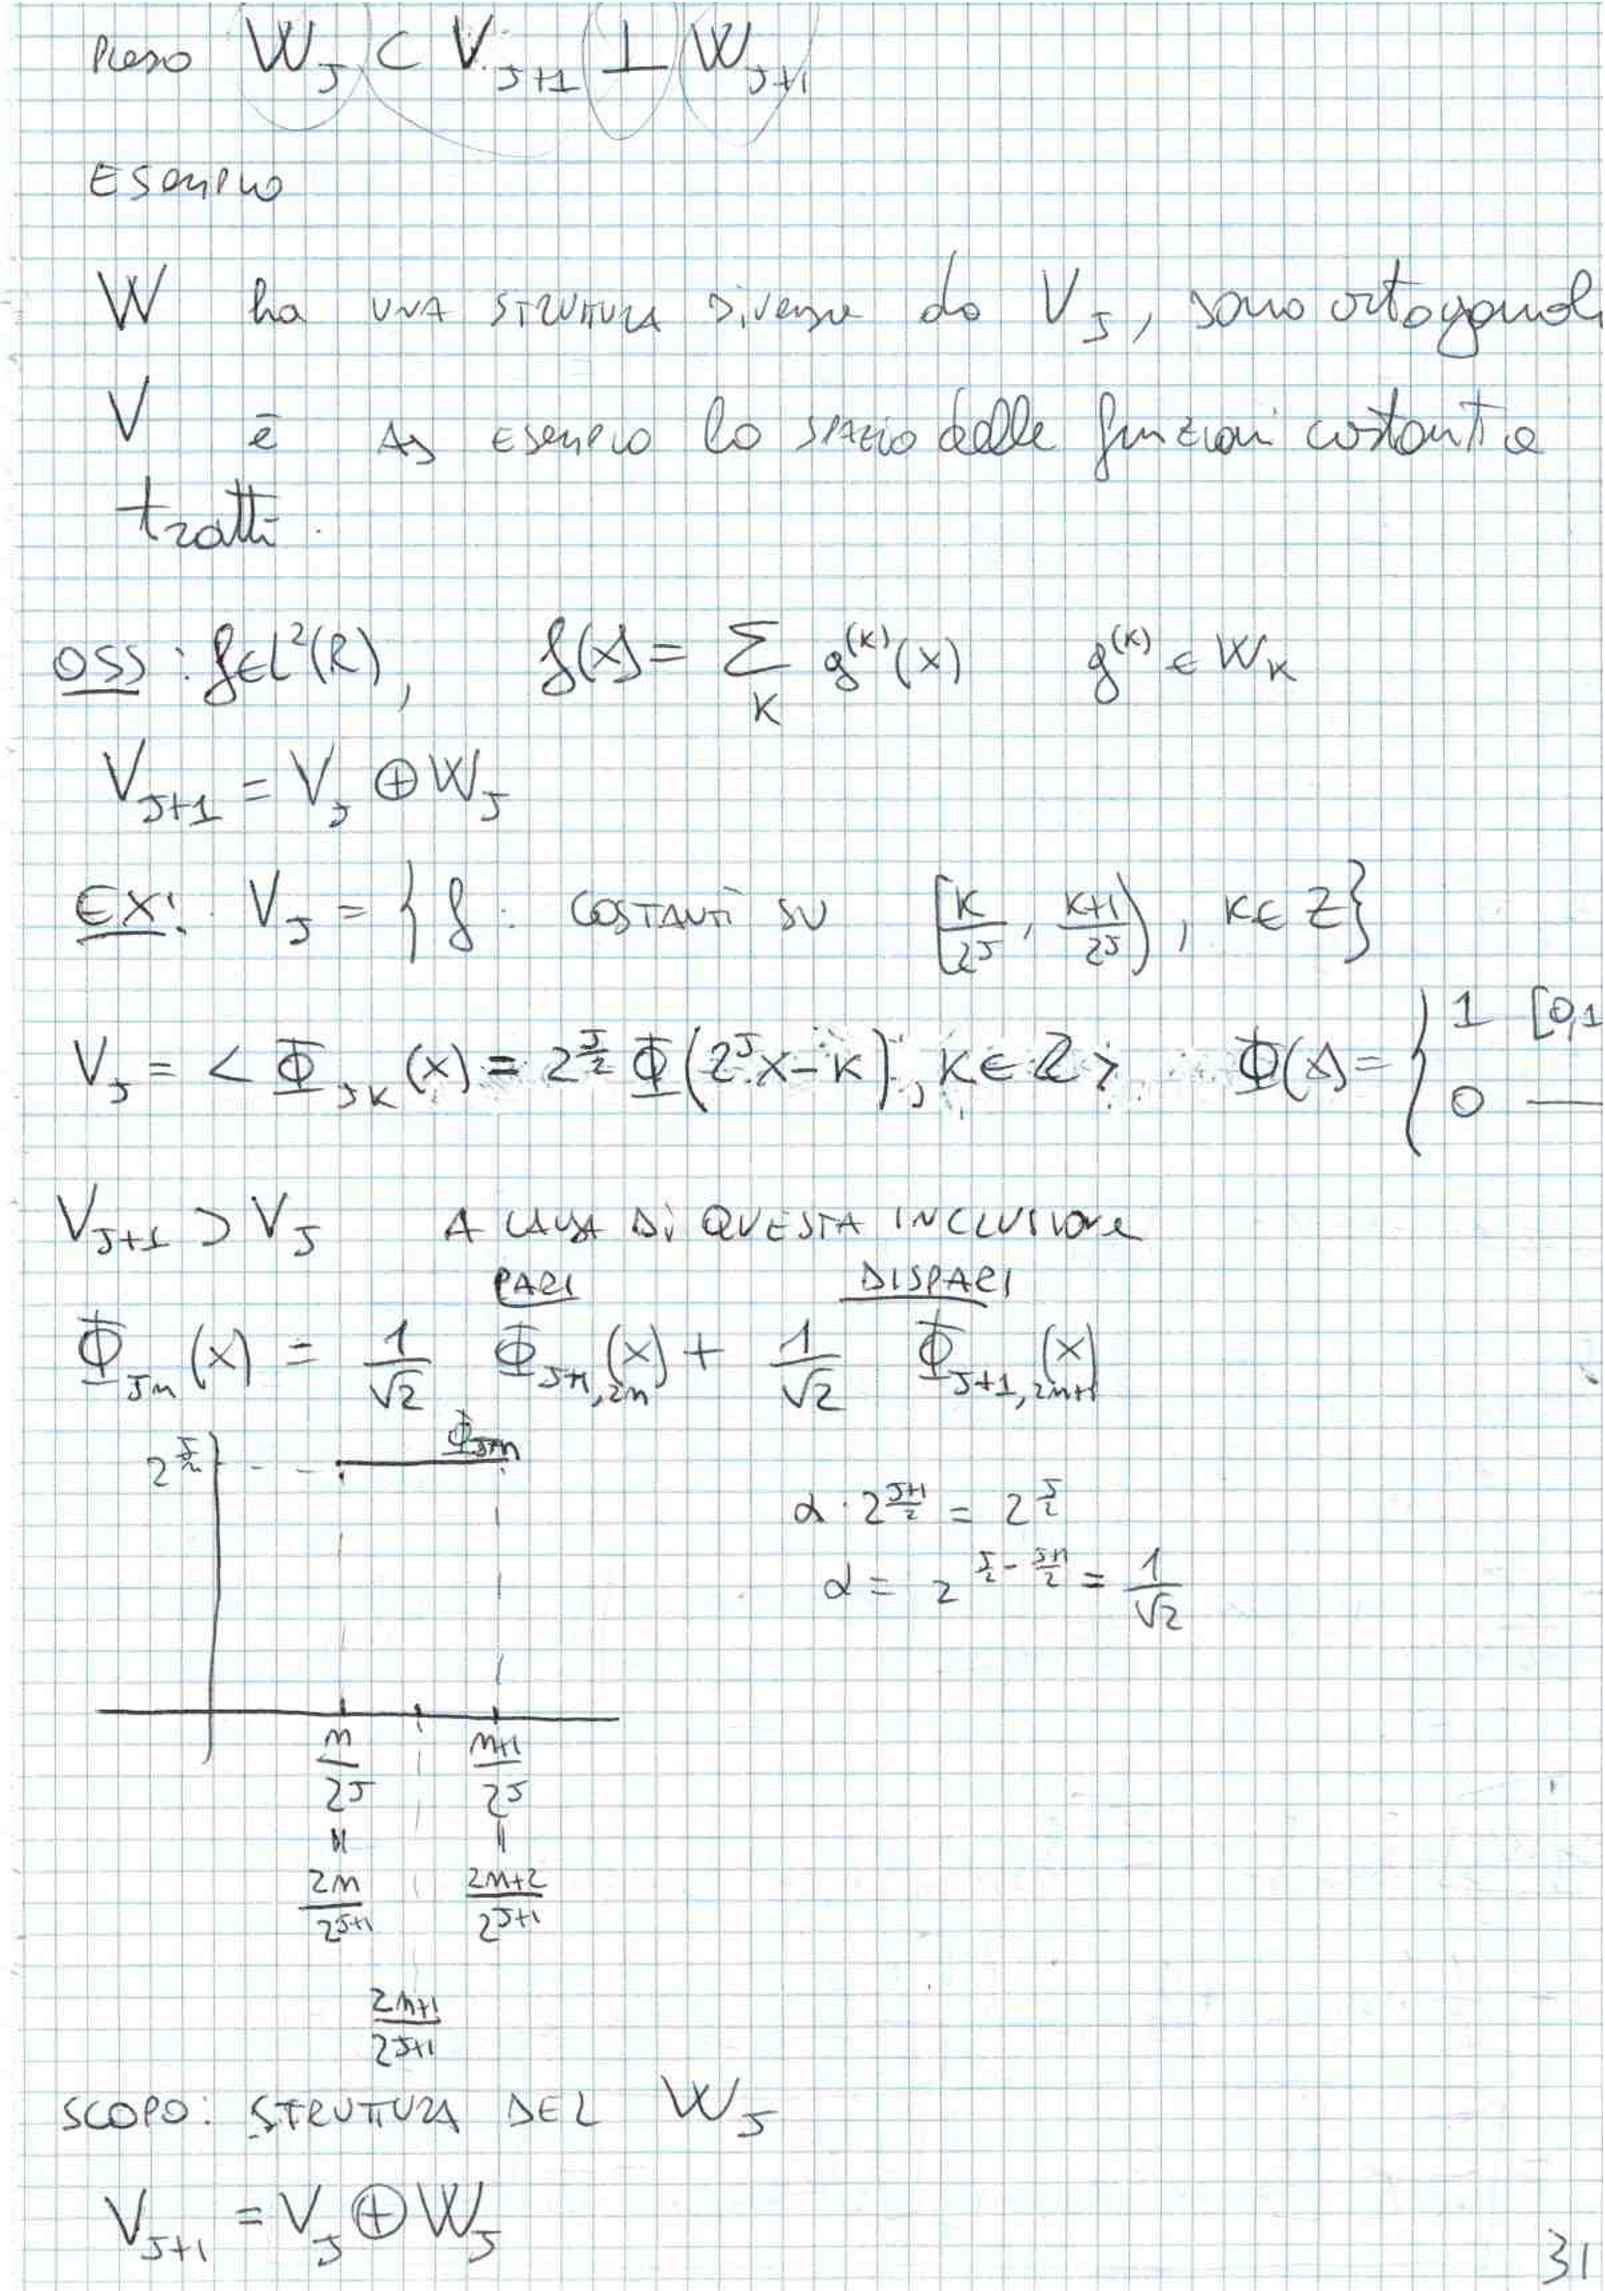 Preso W_J ⊂ V_{J+1} ⊥ W_{J+1}
Esempio
W ha una struttura diversa da V_J, sono ortogonali
V è ad esempio lo spazio delle funzioni costanti a
tratti.
OSS: f∈L²(R), f(x) = Σ_K g^{(K)}(x) g^{(K)} ∈ W_K
V_{J+1} = V_J ⊕ W_J
EX: V_J = { f : COSTANTI SU [K/2^J, (K+1)/2^J), K∈Z}
V_J = < Φ_{JK}(x) = 2^{J/2} Φ(2^J x-K), K∈Z > Φ(x) = { 1 [0,1 0 —
V_{J+1} ⊃ V_J A CAUSA DI QUESTA INCLUSIONE
PARI DISPARI
Φ_{Jn}(x) = 1/√2 Φ_{J+1,2n}(x) + 1/√2 Φ_{J+1,2n+1}(x)
2^{J/2} Φ_{Jn}
α · 2^{(J+1)/2} = 2^{J/2}
α = 2^{J/2 - (J+1)/2} = 1/√2
n/2^J (n+1)/2^J
= =
2n/2^{J+1} (2n+2)/2^{J+1}
(2n+1)/2^{J+1}
SCOPO: STRUTTURA DEL W_J
V_{J+1} = V_J ⊕ W_J
31